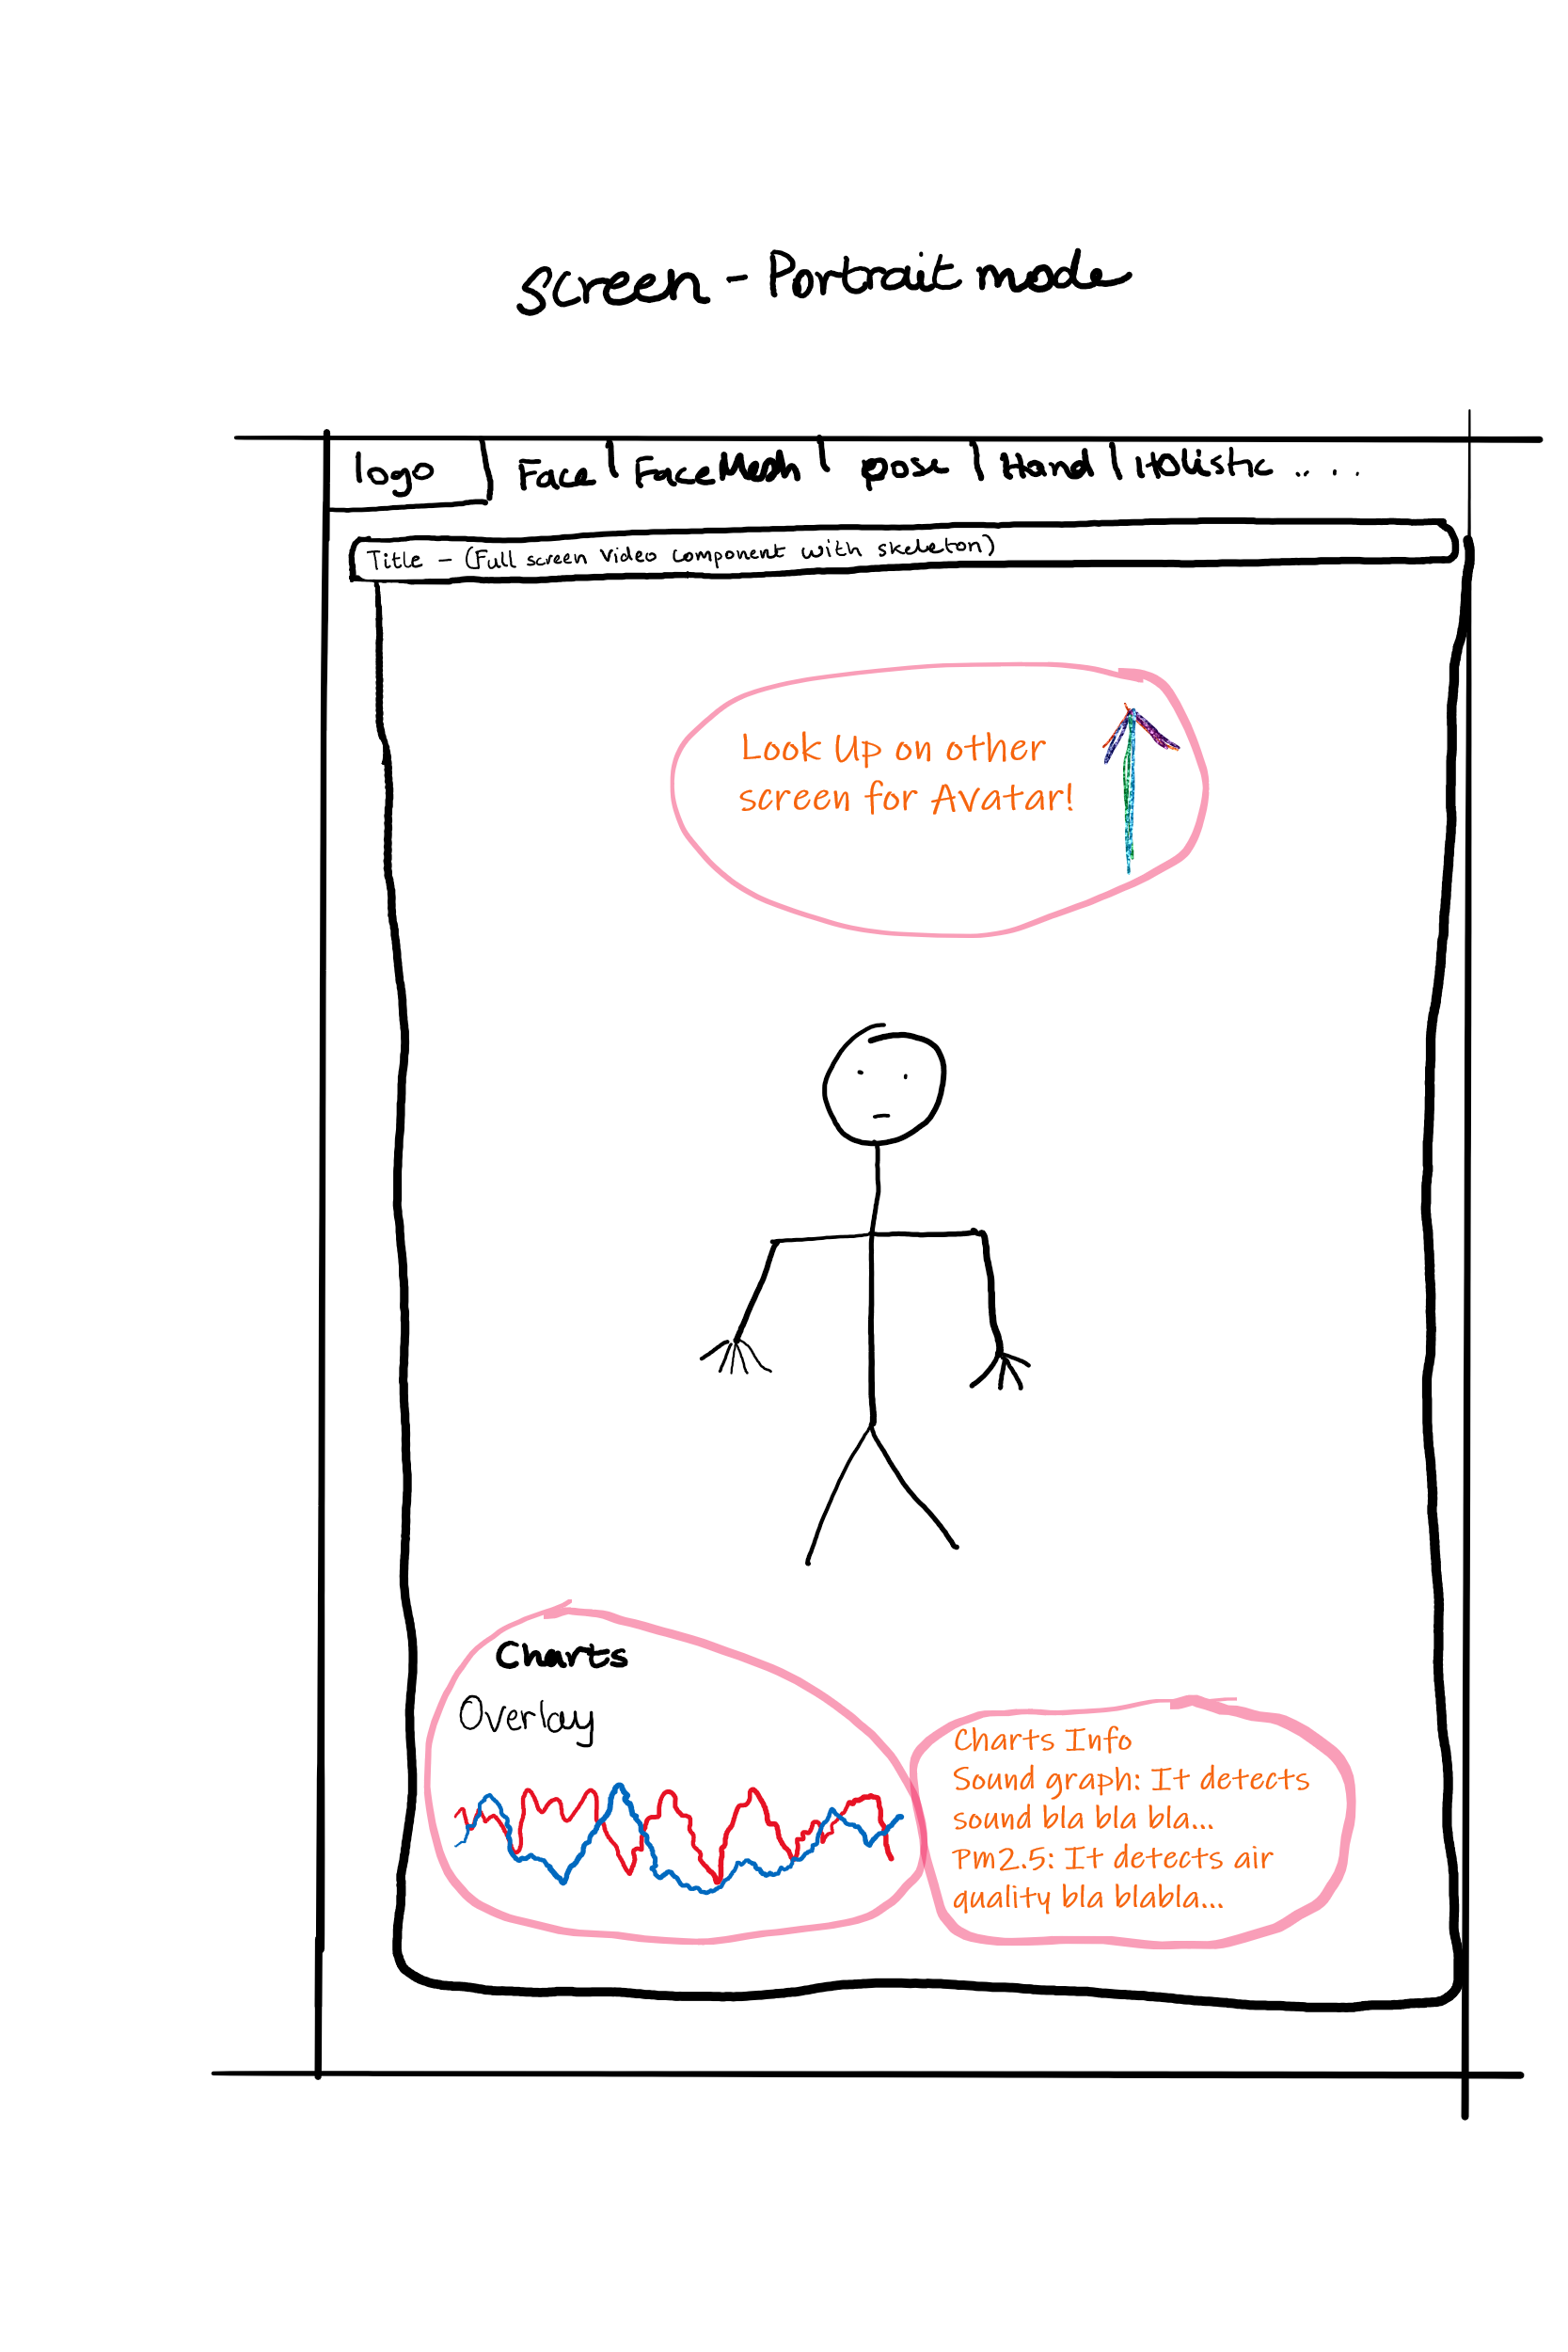 Screen - Portrait mode
logo | Face | FaceMesh | pose | Hand | Holistic .. . .
Title - (Full screen Video Component with skeleton)
Look Up on other
screen for Avatar!
Charts
Overlay
Charts Info
Sound graph: It detects
sound bla bla bla...
Pm2.5: It detects air
quality bla blabla...